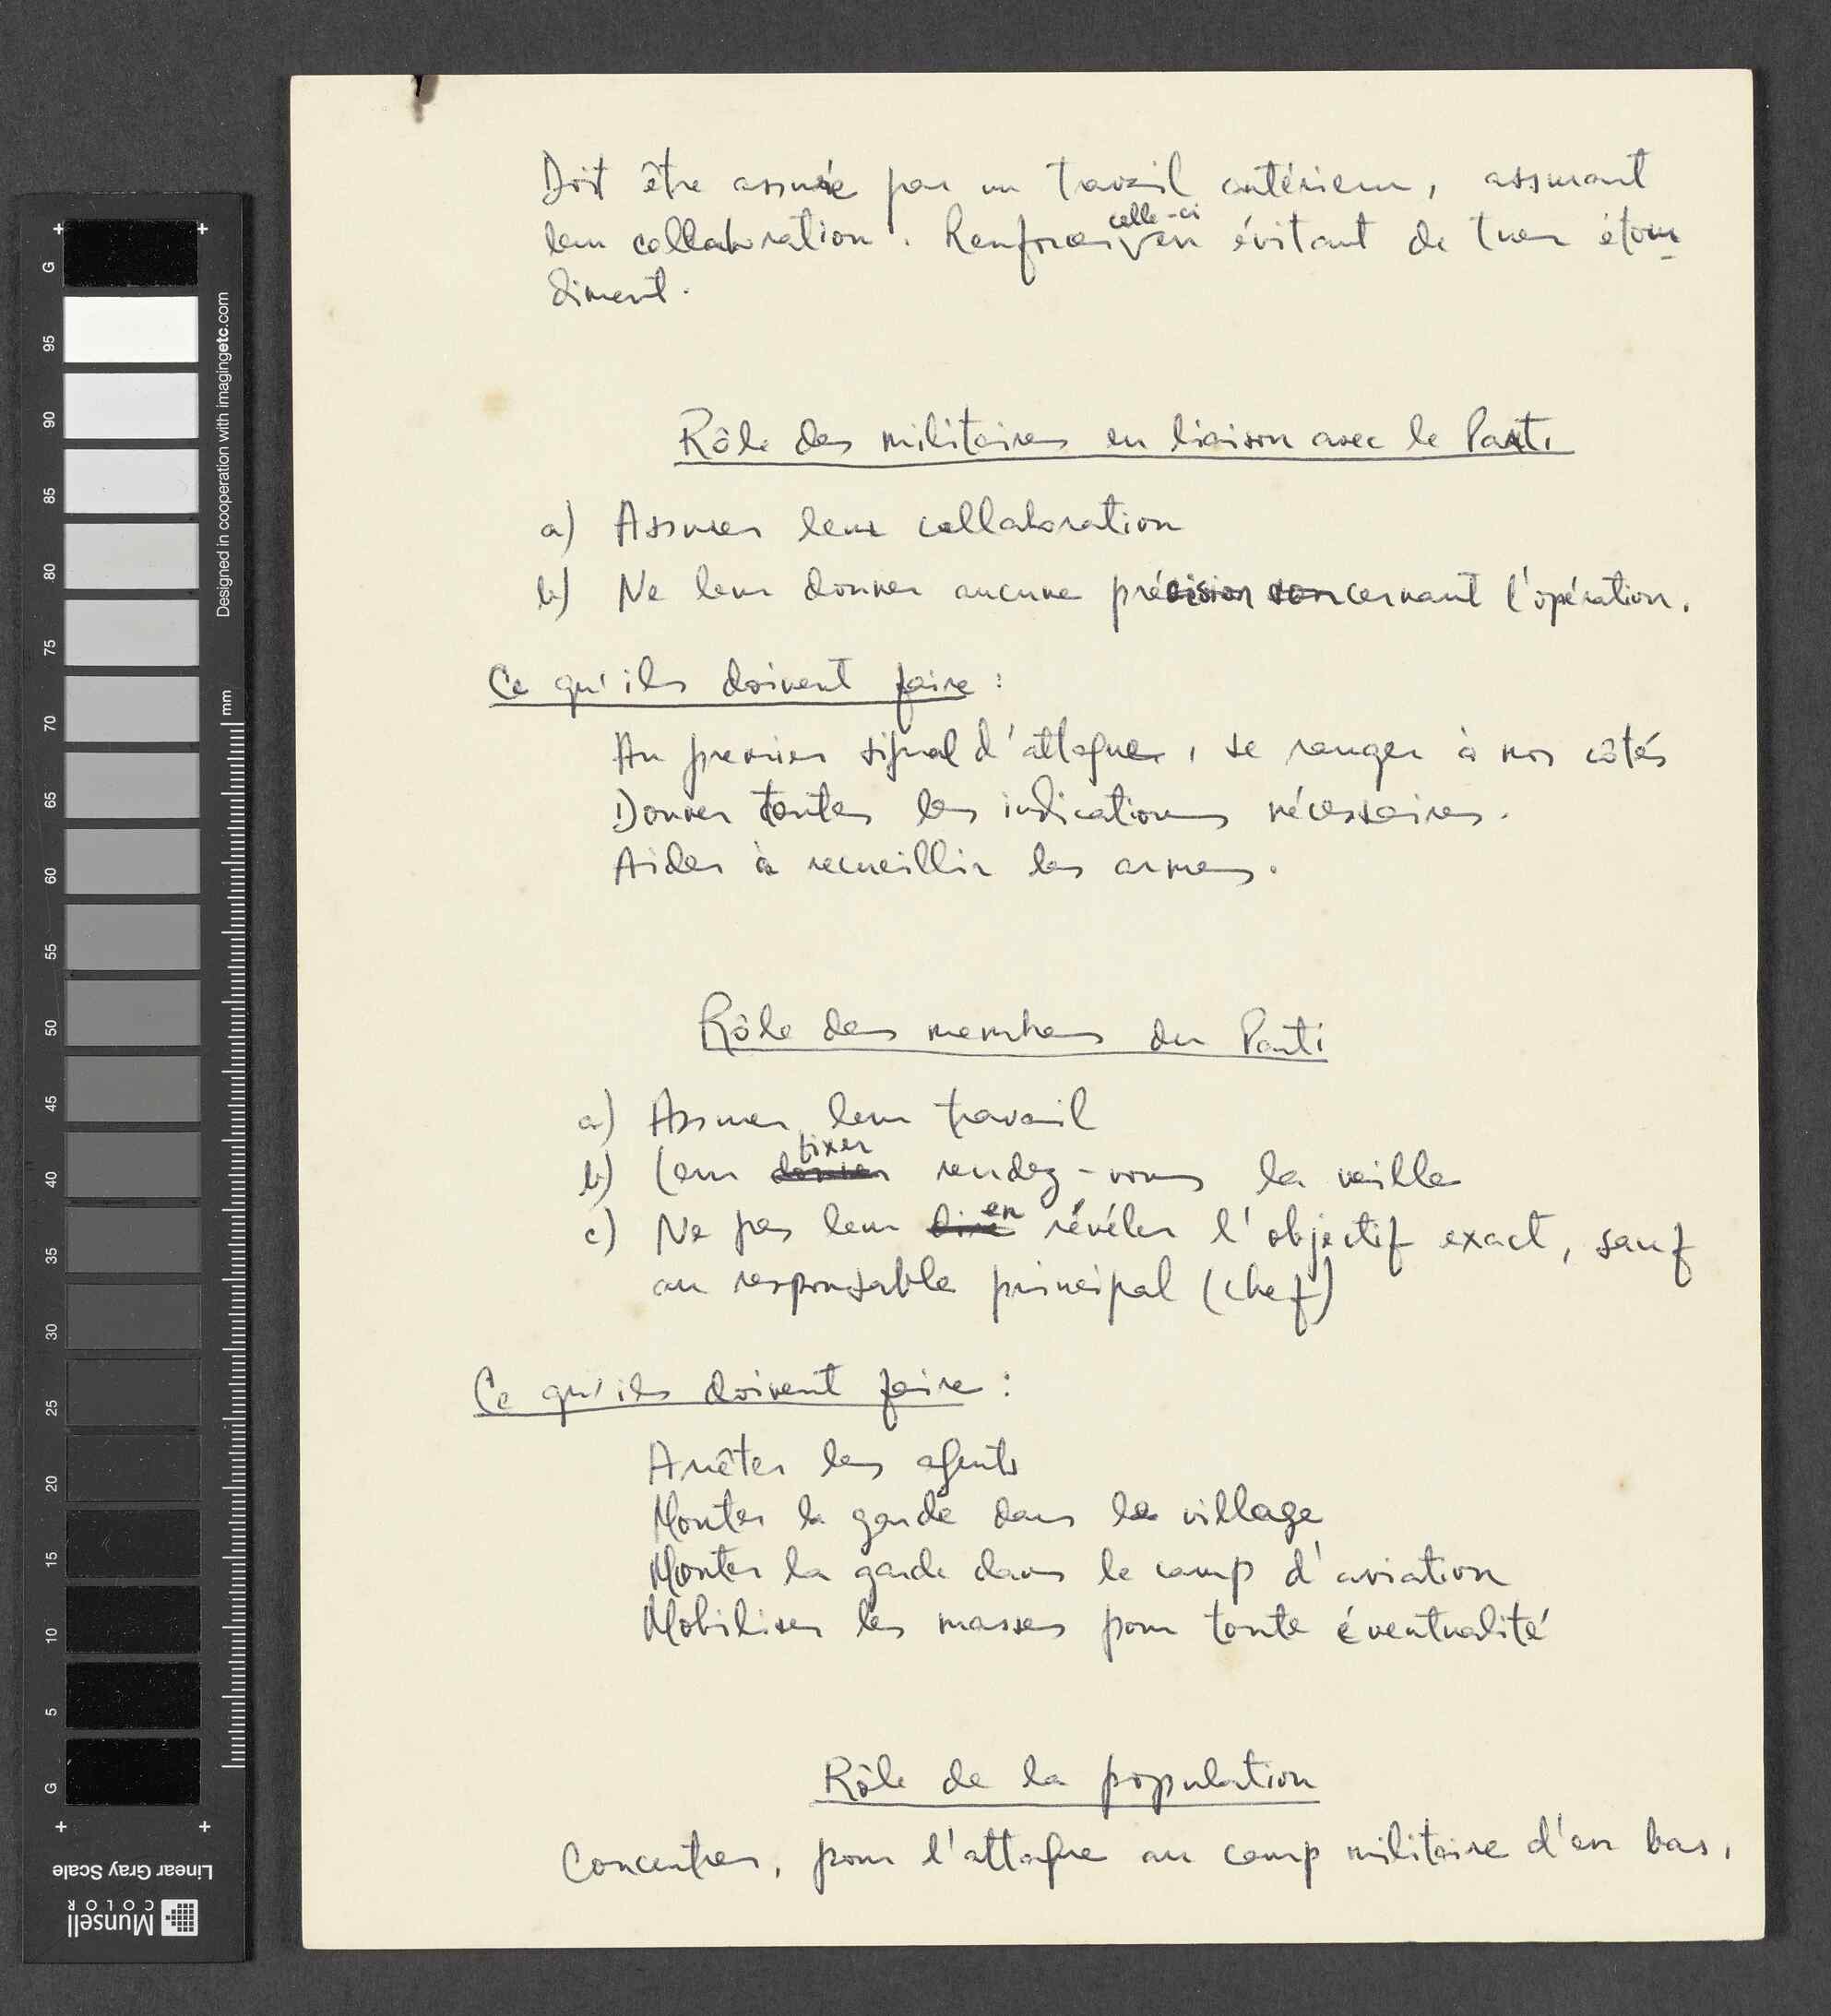 Doit être assurée par un travail antérieur, assurant
leur collaboration. Renforcer celle-ci en évitant de tuer étour-
diment.
Rôle des militaires en liaison avec le Parti
a) Assurer leur collaboration
b) Ne leur donner aucune précision concernant l'opération.
Ce qu'ils doivent faire :
Au premier signal d'attaque, se ranger à nos côtés
Donner toutes les indications nécessaires.
Aider à recueillir les armes.
Rôle des membres du Parti
a) Assurer leur travail
b) Leur donner fixer rendez-vous la veille
c) Ne pas leur dire en révéler l'objectif exact, sauf
au responsable principal (chef)
Ce qu'ils doivent faire :
Arrêter les agents
Monter la garde dans le village
Monter la garde dans le camp d'aviation
Mobiliser les masses pour toute éventualité
Rôle de la population
Concentrer, pour l'attaque au camp militaire d'en bas,
G
95
90
85
80
75
70
65
60
55
50
45
40
35
30
25
20
15
10
5
G
Designed in cooperation with imagingetc.com
mm
Linear Gray Scale
Munsell
COLOR